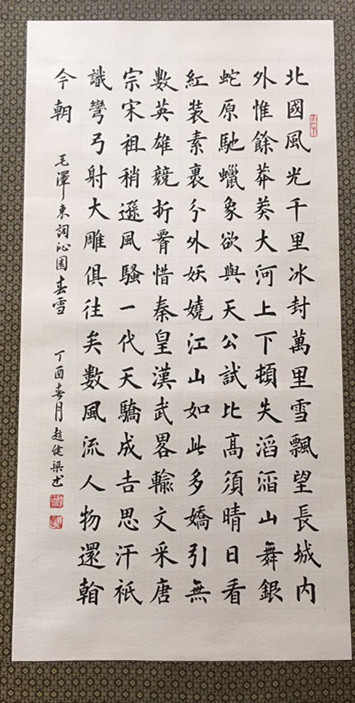 北國風光千里冰封萬里雪飄望長城内
外惟餘莽莽大河上下頓失滔滔山舞銀
蛇原馳蠟象欲與天公試比高須晴日看
紅装素裹分外妖嬈江山如此多嬌引無
數英雄競折惜秦皇漢武畧輸文采唐
宗宋祖稍遜風騷一代天驕成吉思汗祇
識彎弓射大雕俱往矣數風流人物還
今朝
毛澤東詞沁園春雪 丁酉春月趙健